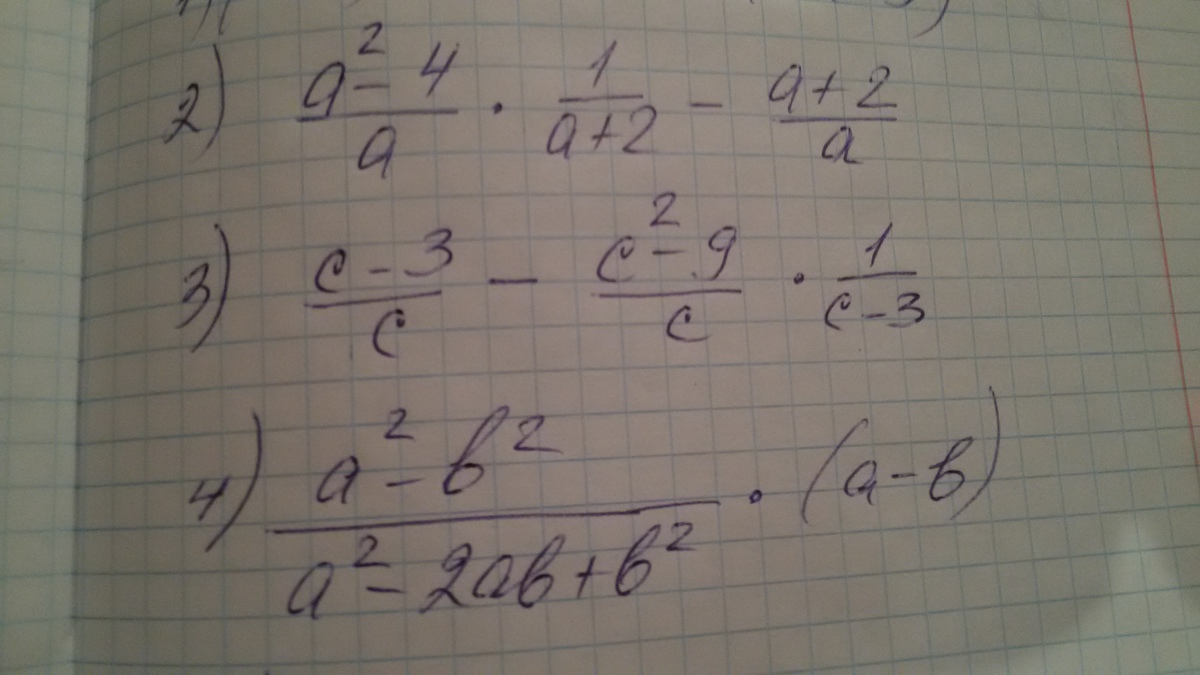 2) (a² - 4)/a · 1/(a+2) - (a+2)/a
3) (c - 3)/c - (c² - 9)/c · 1/(c-3)
4) (a² - b²)/(a² - 2ab + b²) · (a - b)